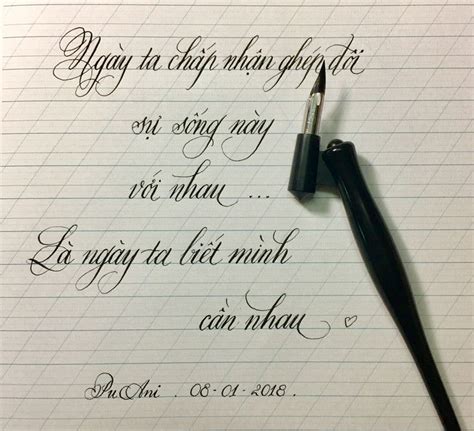 Ngày ta chấp nhận ghép đôi
sự sống này
với nhau ...
Là ngày ta biết mình
cần nhau
PuAni . 08-01-2018 .